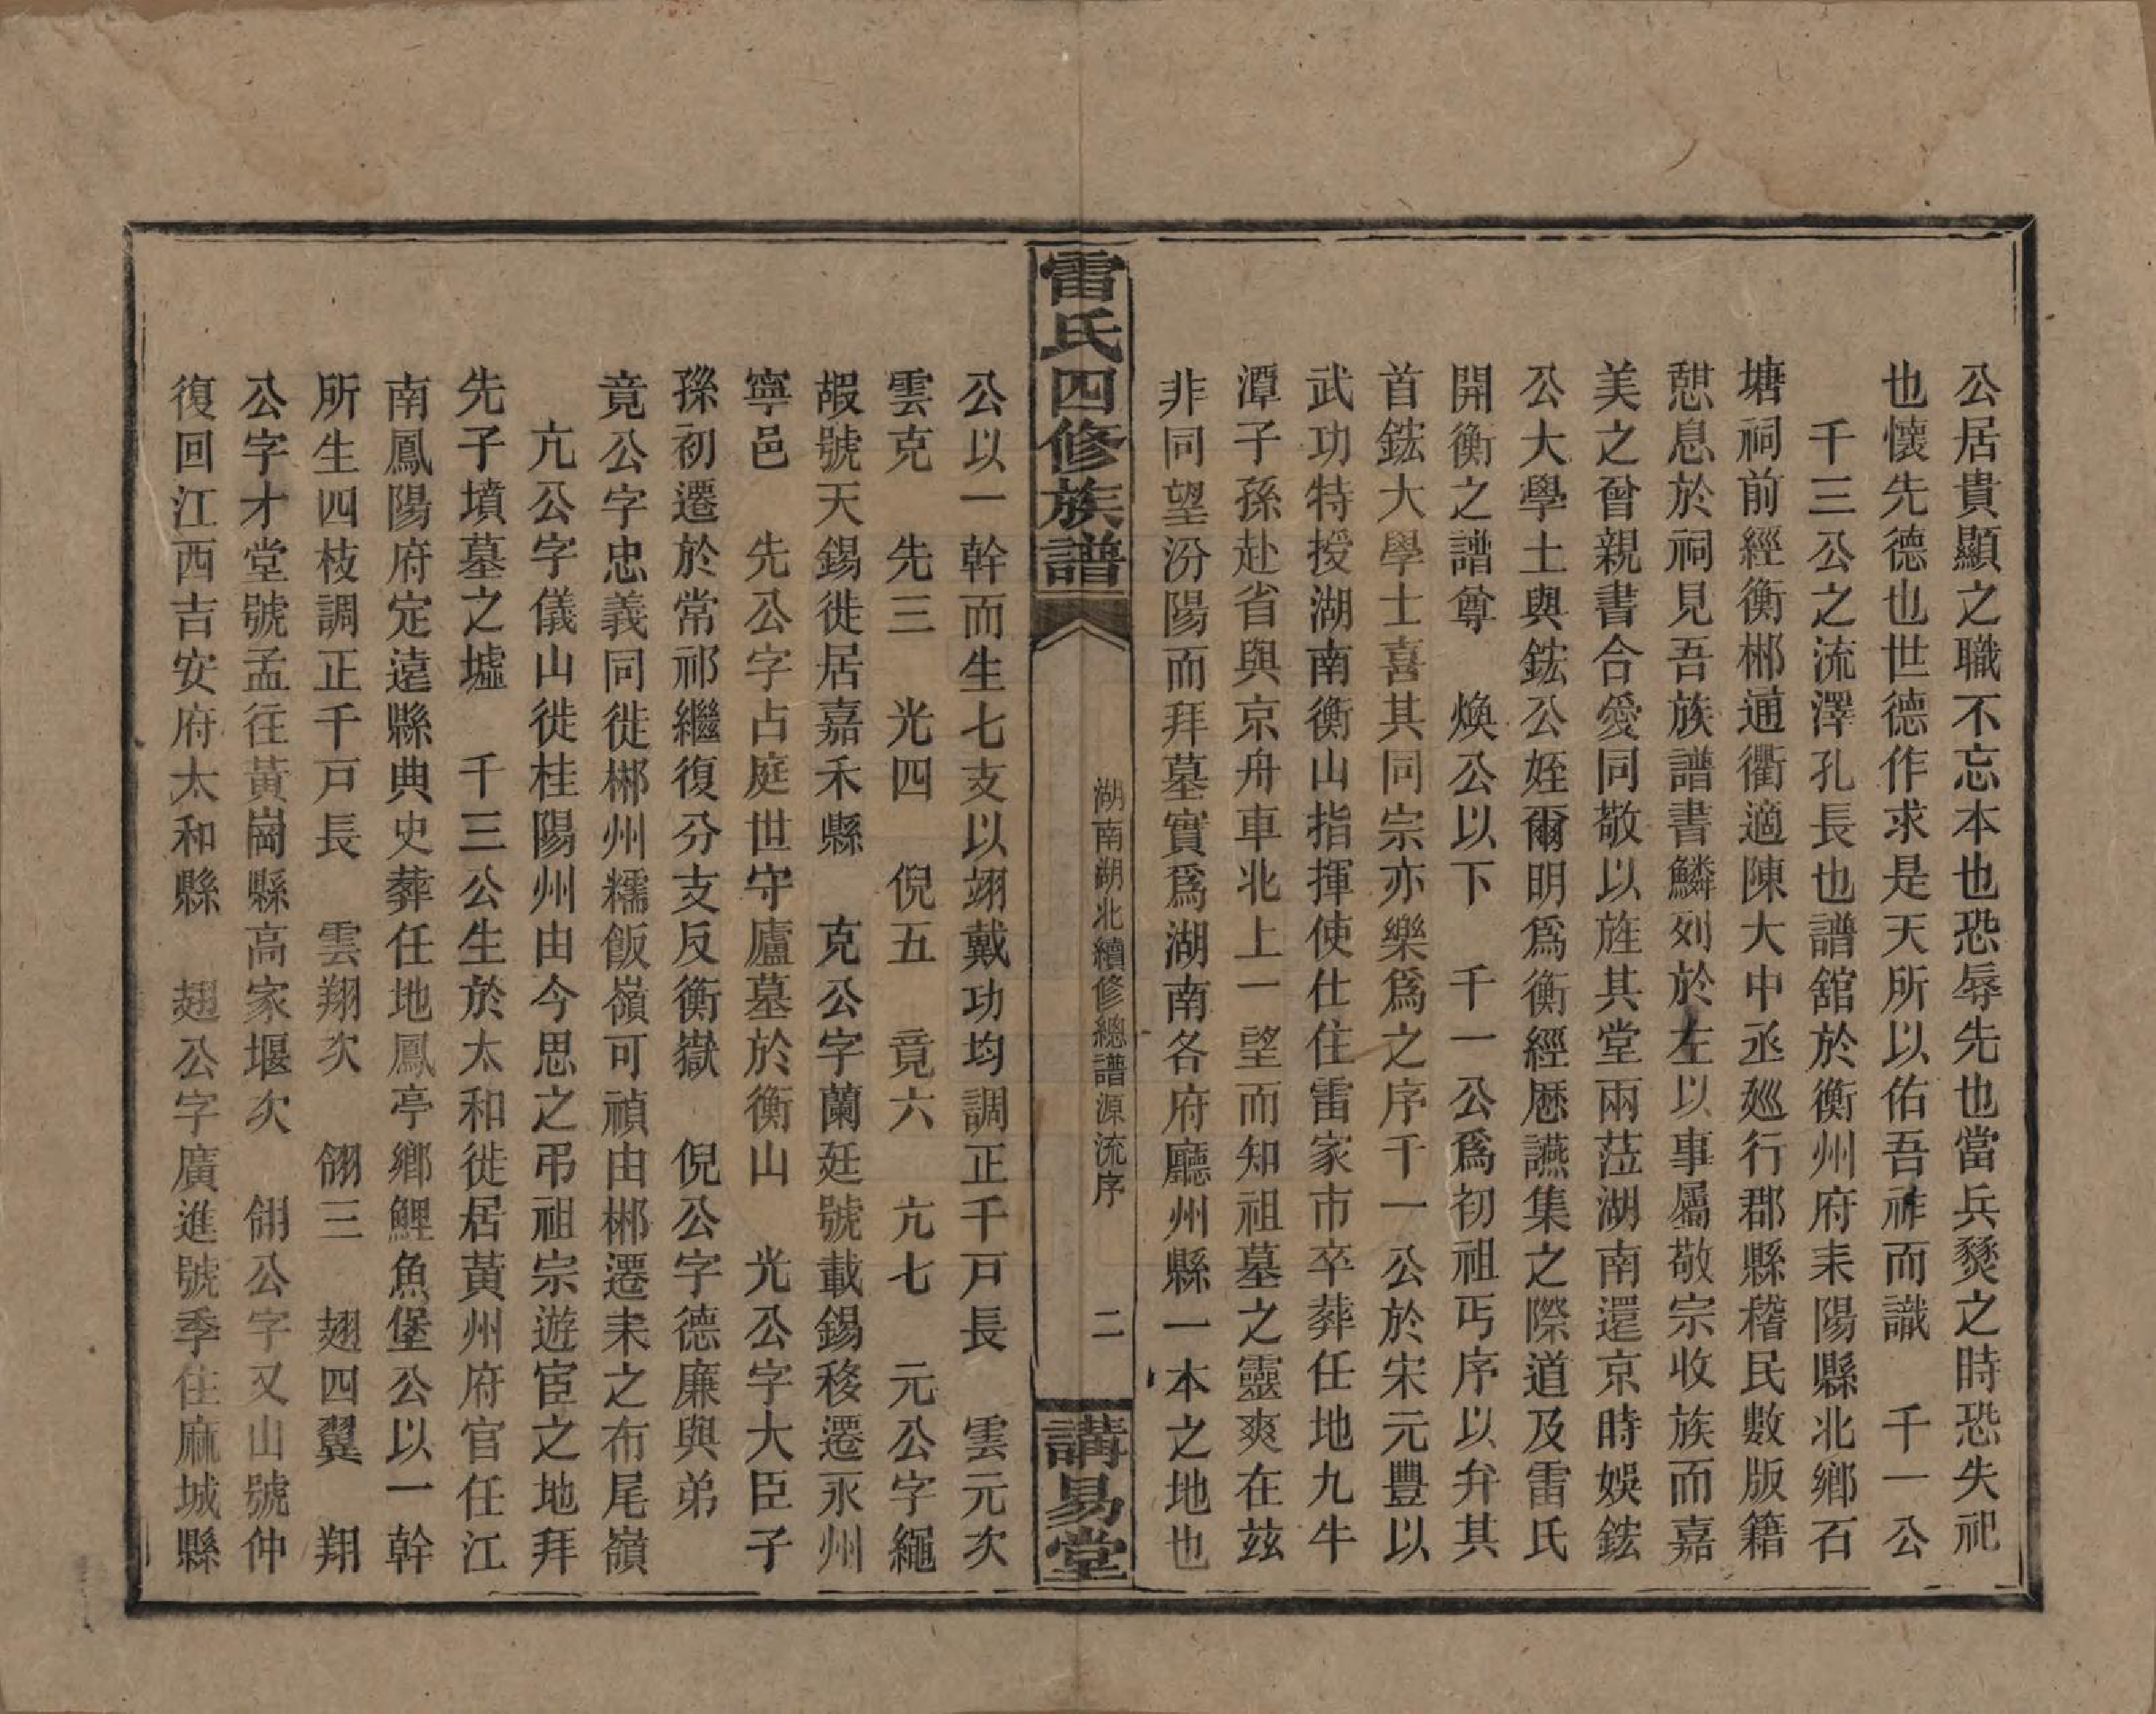 公居貴顯之職不忘本也恐辱先也當兵燹之時恐失祀
也懷先德也世德作求是天所以佑吾祚而識　千一公
千三公之流澤孔長也譜舘於衡州府耒陽縣北鄉石
塘祠前經衡郴通衢適陳大中丞廵行郡縣稽民數版籍
憇息於祠見吾族譜書書鱗列於左以事屬敬宗收族而嘉
美之曾親書合愛同敬以旌其堂兩蒞湖南還京時娛鋐
公大學士與鋐公姪爾明爲衡經厯讌集之際道及雷氏
開衡之譜尊　煥公以下　千一公爲初祖丐序以弁其
首鋐大學士喜其同宗亦樂爲之序千一公於宋元豐以
武功特授湖南衡山指揮使仕住雷家市卒葬任地九牛
潭子孫赴省與京舟車北上一望而知祖墓之靈爽在茲
非同望汾陽而拜墓實爲湖南各府廳州縣一本之地也
雷氏四修族譜
湖南湖北續修總譜源流序
二
講易堂
公以一幹而生七支以翊戴功均調正千戸長　雲元次
雲克　先三　光四　倪五　竟六　亢七　元公字繩
嘏號天錫徙居嘉禾縣　克公字蘭廷號載錫移遷永州
寧邑　先公字占庭世守廬墓於衡山　光公字大臣子
孫初遷於常祁繼復分支反衡嶽　倪公字德廉與弟
竟公字忠義同徙郴州糯飯嶺可禎由郴遷耒之布尾嶺
亢公字儀山徙桂陽州由今思之弔祖宗遊宦之地拜
先子墳墓之墟　千三公生於太和徙居黃州府官任江
南鳳陽府定遠縣典史葬任地鳳亭鄉鯉魚堡公以一幹
所生四枝調正千戸長　雲翔次　翎三　翅四翼　翔
公字才堂號孟往黃崗縣高家堰次　翎公字又山號仲
復回江西吉安府太和縣　翅公字廣進號季住麻城縣